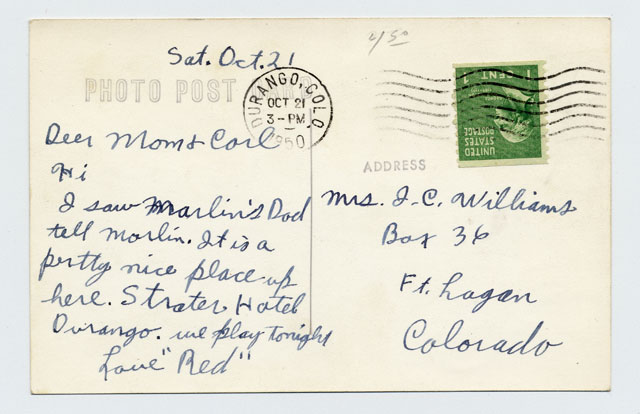 4 50
Sat. Oct. 21
PHOTO POST CARD
DURANGO, COLO.
OCT 21
3-PM
1950
1 CENT 1
UNITED
STATES
POSTAGE
ADDRESS
Dear Mom & Carl
Hi
I saw Marlin's Dad
tell Marlin. It is a
pertty nice place up
here. Strater Hotel
Durango. we play tonight
Love "Red"
Mrs. I-C. Williams
Box 36
Ft. Logan
Colorado